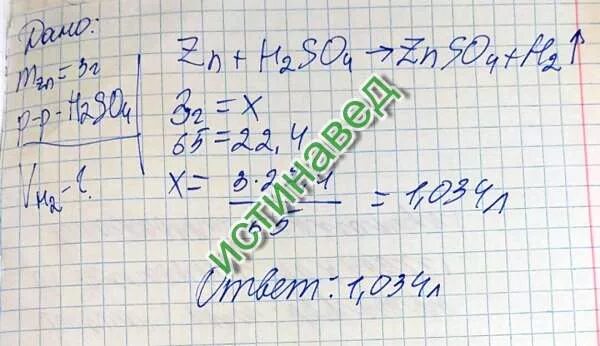 Дано:
m Zn = 3г
р-р - H₂SO₄
V H₂ - ?
Zn + H₂SO₄ → ZnSO₄ + H₂↑
3г = x
65 = 22,4
x = 3·22,4 / 65 = 1,034л
Ответ: 1,034л
истинавед